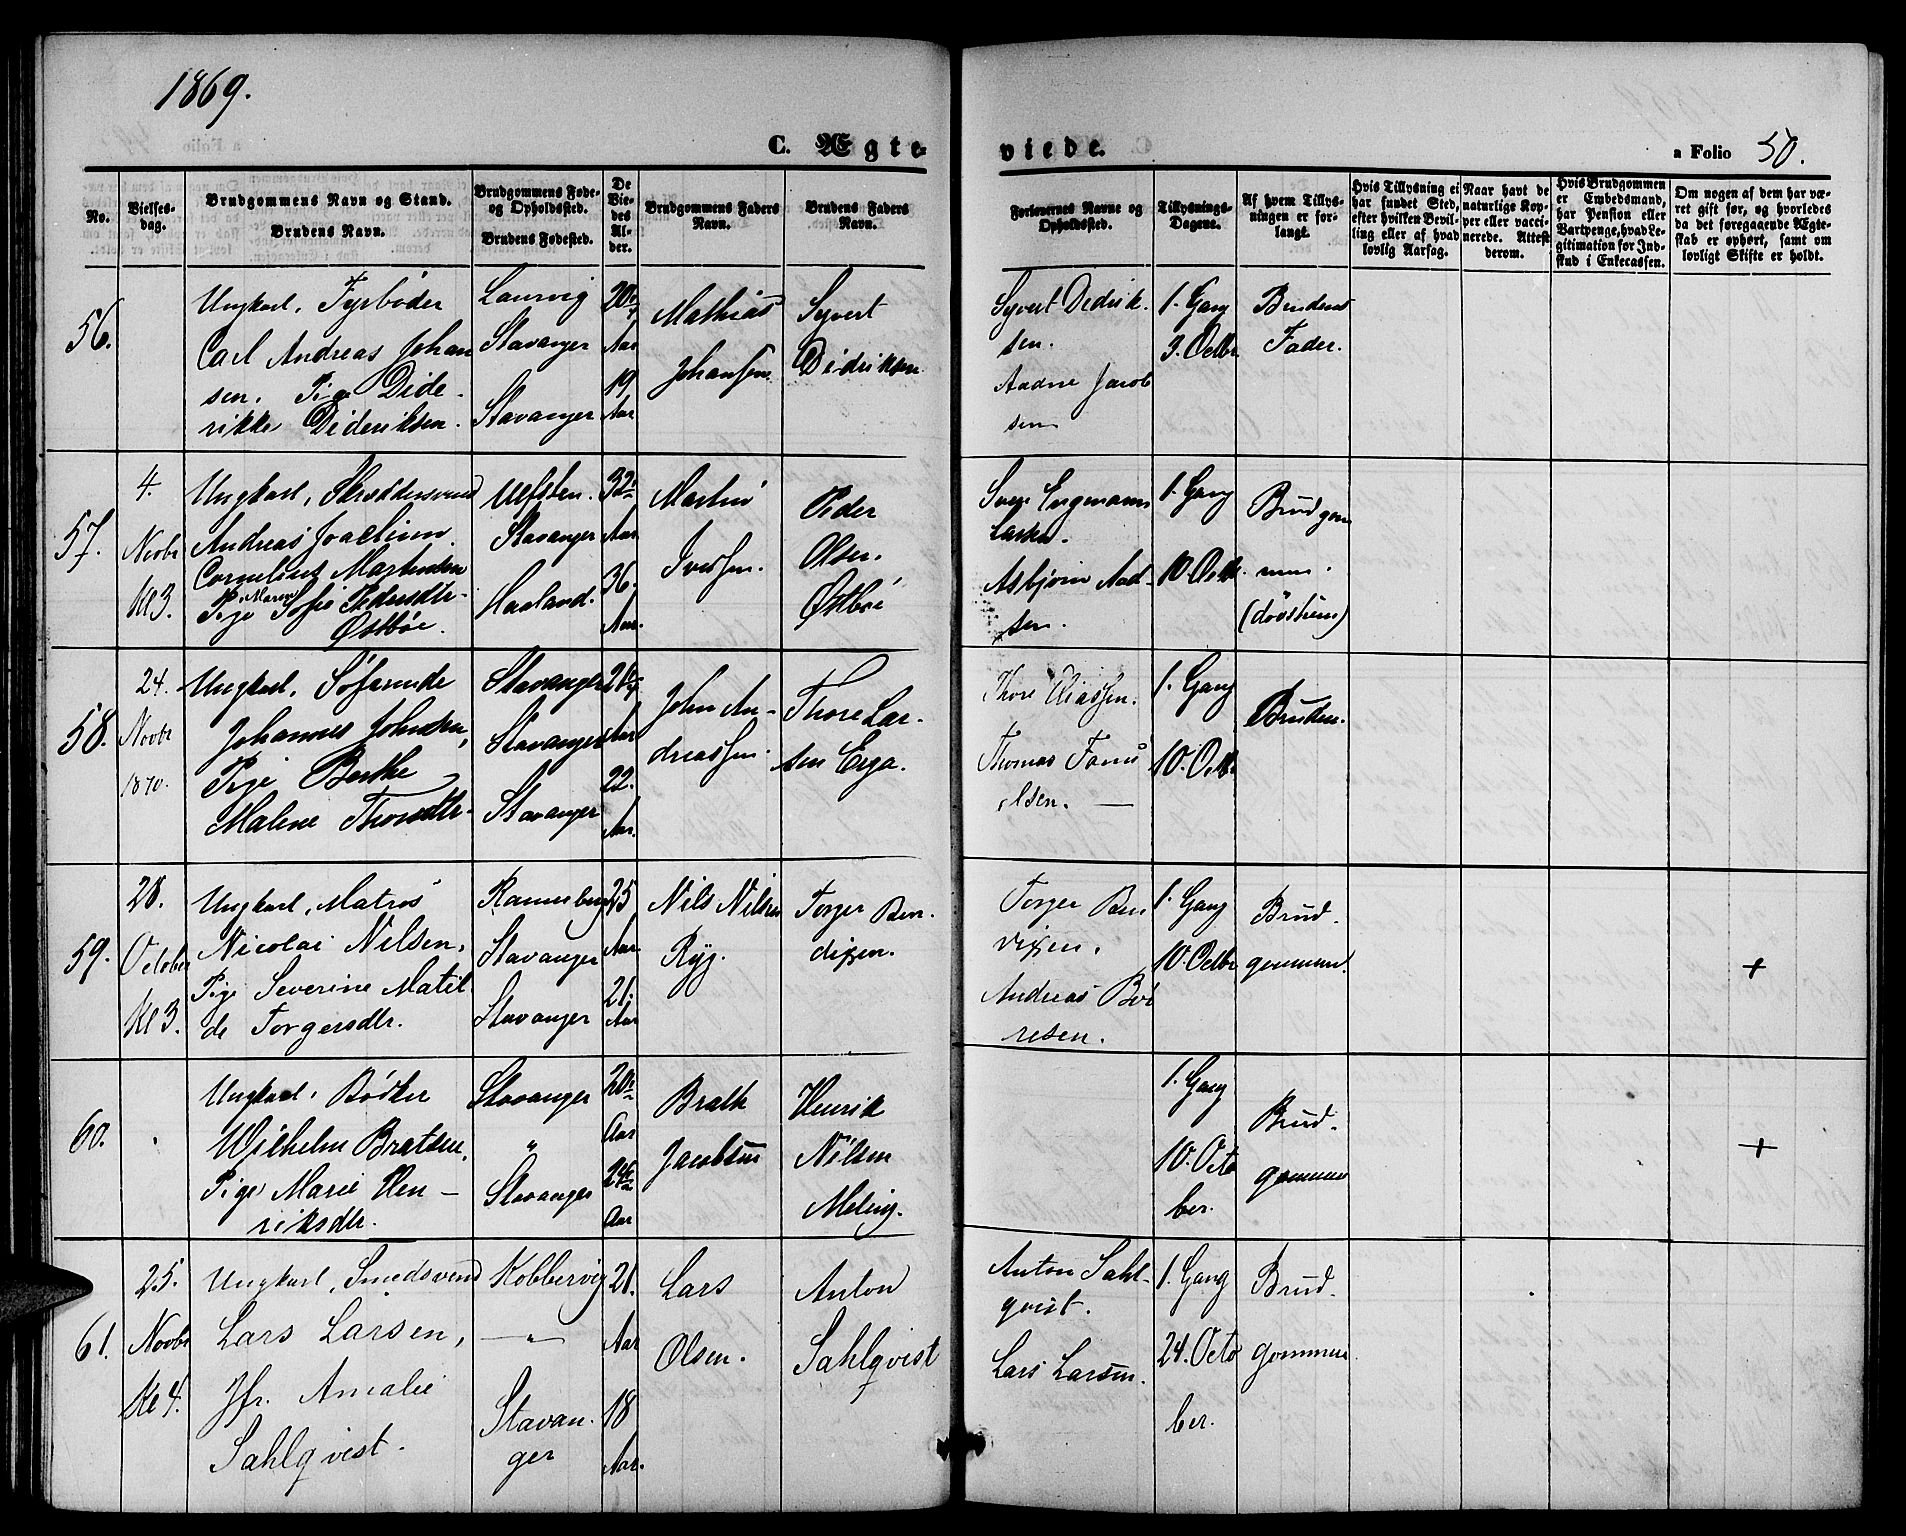 1869.
C. Ægteviede.
a Folio 50.
No.
Vielsesdag.
Brudgommens Navn og Stand.
Brudens Navn.
Brudgommens Føde- og Opholdssted.
Brudens Fødested.
De Viedes Alder.
Brudgommens Faders Navn.
Brudens Faders Navn.
Forlovernes Navne og Opholdssted.
Tillysnings-Dagene.
Af hvem Tillysningen er forlangt.
Hvis Tillysning ei har fundet Sted, efter hvilken Bevilling eller af hvad lovlig Aarsag.
Naar havt de naturlige Kopper eller vaccinerede. Attest derom.
Hvis Brudgommen er Embedsmand, har Pension eller Vartpenge, hvad Legitimation for Indskud i Enkecassen.
Om nogen af dem har været gift før, og hvorledes da det foregaaende Ægteskab er ophørt, samt om lovligt Skifte er holdt.
56.
Ungkarl, Fyrbøder
Carl Andreas Johan
sen. Pige Dide-
rikke Dideriksen.
Laurvig
Stavanger
Stavanger
Aar
19
Aar
Mathias
Johansen
Syvert
Didriksen
Syvert Dedrik
sen.
Aadne Jacob
sen
1. Gang
3. Octbr
Brudens
Fader.
57.
4.
Novbr
Kl 3.
Ungkarl, Skræddersvend
Andreas Joachim
Cornelius Martinsen
Pige Maren Sofie Pedersdtr-
Østbøe.
Stavanger
Haaland.
32
Aar
36.
Aar.
Martin
Iversen.
Peder
Olsen
Østbøe
Asbjørn Aad-
sen.
1. Gang
10. Octbr.
Brudgom
men.
(døvstum)
58.
24.
Novbr
1870.
Ungkarl, Søfarende
Johannes Johnsen,
Pige Berthe
Malene Thorsdtr-
Stavanger
Stavanger
Stavanger
Aar
22.
Aar.
John An-
dreassen.
Thore Lar-
sen Erga.
Thore Eliassen.
Thomas
1. Gang
10. Octbr
Bruden.
59.
28.
October
Kl 3.
Ungkarl, Matros
Nicolai Nilsen,
Pige Severine Matil
de Torgersdtr.
Stavanger
Stavanger
25
Aar
21.
Aar
Nils Nilsen
Ryg.
Torger Ben-
dixen.
Torger Ben
dixen.
Andreas Bør
resen.
1. Gang
10. Octbr
Brud-
gommen.
+
60.
Ungkarl, Bødker
Wilhelm Bratsen,
Pige Marie Hen-
riksdtr.
Stavanger
"
Stavanger
Aar
24
Aar
Bratt
Jacobsen
Henrik
Nilsen
Meling.
1. Gang
10. Octo
ber.
Brud-
gommen
+
61.
25.
Novbr
Kl 4.
Ungkarl, Smedsvend
Lars Larsen,
Jfr. Amalie
Sahlqvist.
Kobbervig
—"—
Stavan-
ger
21.
Aar
18
Aar.
Lars
Olsen.
Anton
Sahlqvist
Anton Sahl-
qvist.
Lars Larsen.
1. Gang
24. Octo
ber.
Brud-
gommen